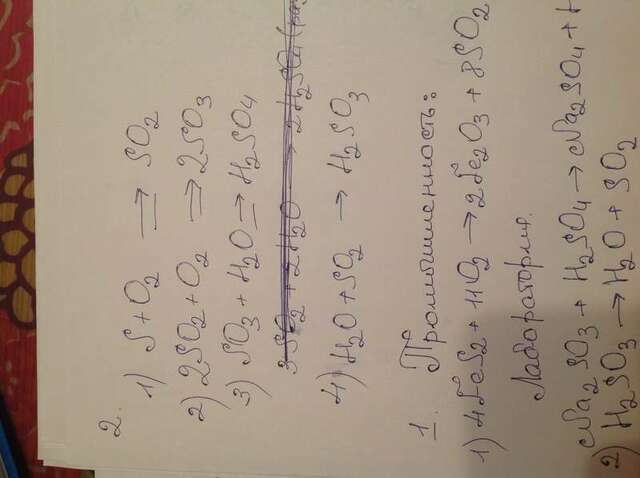 2.
1) S + O2 => SO2
2) 2SO2 + O2 => 2SO3
3) SO3 + H2O => H2SO4
4) H2O + SO2 → H2SO3
1. Промышленность:
1) 4FeS2 + 11O2 → 2Fe2O3 + 8SO2
Лаборатория.
Na2SO3 + H2SO4 → Na2SO4 + H
2) H2SO3 → H2O + SO2